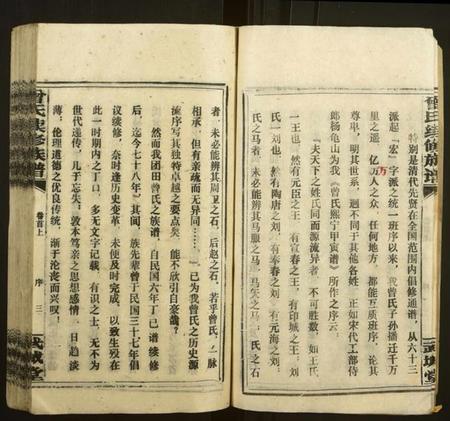 特别是清代先贤在全国范围内倡修通谱，从六十三
派起「宏」字派之统一班序以来，我曾氏子孙播迁千万
里之遥，亿万人之众，任何地方，都能互质班序，论其
尊卑，明其世系，迥不同于其他各姓，正如宋代工部侍
郎杨龟山为我《曾氏熙宁甲寅谱》所作之序云：
「夫天下之姓氏同而源流异者，不可胜数，如王氏
一王也，然有元臣之王，有宣春之王，有印城之王，刘
氏一刘也，然有陶唐之刘，有奉春之刘，有元海之刘，
氏之马者，未必能辨其马服之马，马矢之马，氏之石
者，未必能辨其周卫之石，后赵之石，若乎曾氏，一脉
相承，但有亲疏而无异同…」已为我曾氏之历史源
流序写其独特卓越之要点矣，能不欣引自豪哉？
然而我团田曾氏之族谱，自民国六年丁巳谱续修
后，迄今七十八年，其间，族先辈曾于民国三十七年倡
议续修，奈时逢历史变革，未便及时完成，以致生殁在
此一时期内之丁口，多无文字记载，有识之士，无不为
世代递传，几于忘失，敦本笃亲之思想感情，日趋淡
薄，伦理道德之优良传统，渐于沦丧而兴叹！
曾氏续修族谱
卷首上
序
三
武城堂
曾氏续修族谱
武城堂